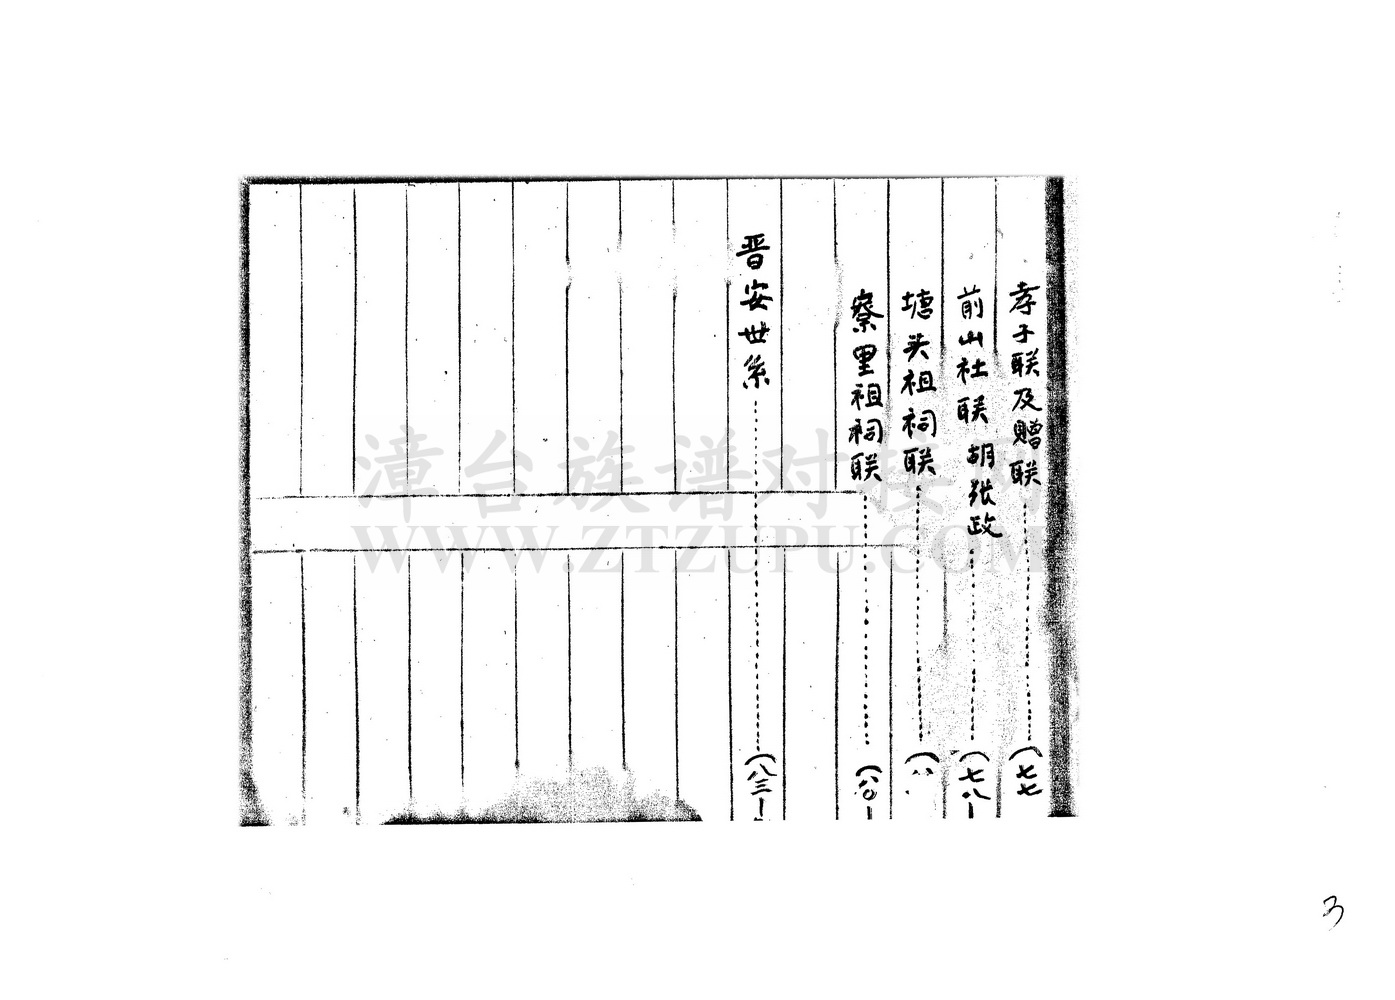 孝子联及赠联……(七七
前山社联 胡张政……(七八—
塘头祖祠联……(八
寮里祖祠联……(八〇—
晋安世系……(八三—
漳台族谱对接网
WWW.ZTZUPU.COM
3